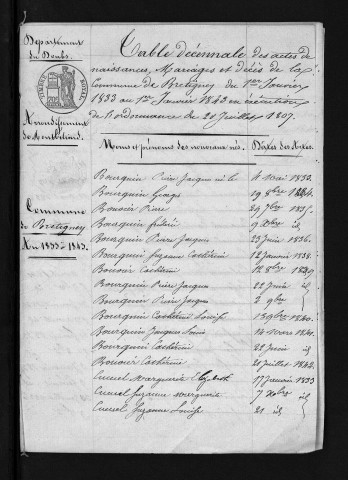 Département
du Doubs.
Arrondissement
de Montbéliard.
Commune
de Bretigney
An 1833 à 1843.
Table décennale des actes de
naissances, Mariages et décès de la
Commune de Bretigney du 1er Janvier
1833 au 1er Janvier 1843 en exécution
de l'ordonnance du 20 Juillet 1807.
Noms et prénoms des nouveaux nés. Dates des Actes.
Bourquin Pierre Jacques né le 4 Mai 1833.
Bourquin George 19 8bre 1834.
Bouvier Pierre 1835.
Bourquin fréderic 9 id
Bourquin Pierre Jacques 23 Juin 1836.
Bourquin Suzanne Cathérine 12 Janvier 1838.
Bouvier Cathérine 12 8bre 1839
Bourquin Pierre Jacques 22 Juin id
Bourquin Pierre Jacques 2 9bre id
Bourquin Cathérine Louise 1840.
Bourquin Jacques Louis 14 Mars 1841.
Bourquin Cathérine 22 Juin id
Bouvier Cathérine 21 Juillet 1842.
Cucuel Marguerite Elizabeth 17 Janvier 1833
Cucuel Suzanne Marguerite 7 id
Cucuel Suzanne Louise 21 id